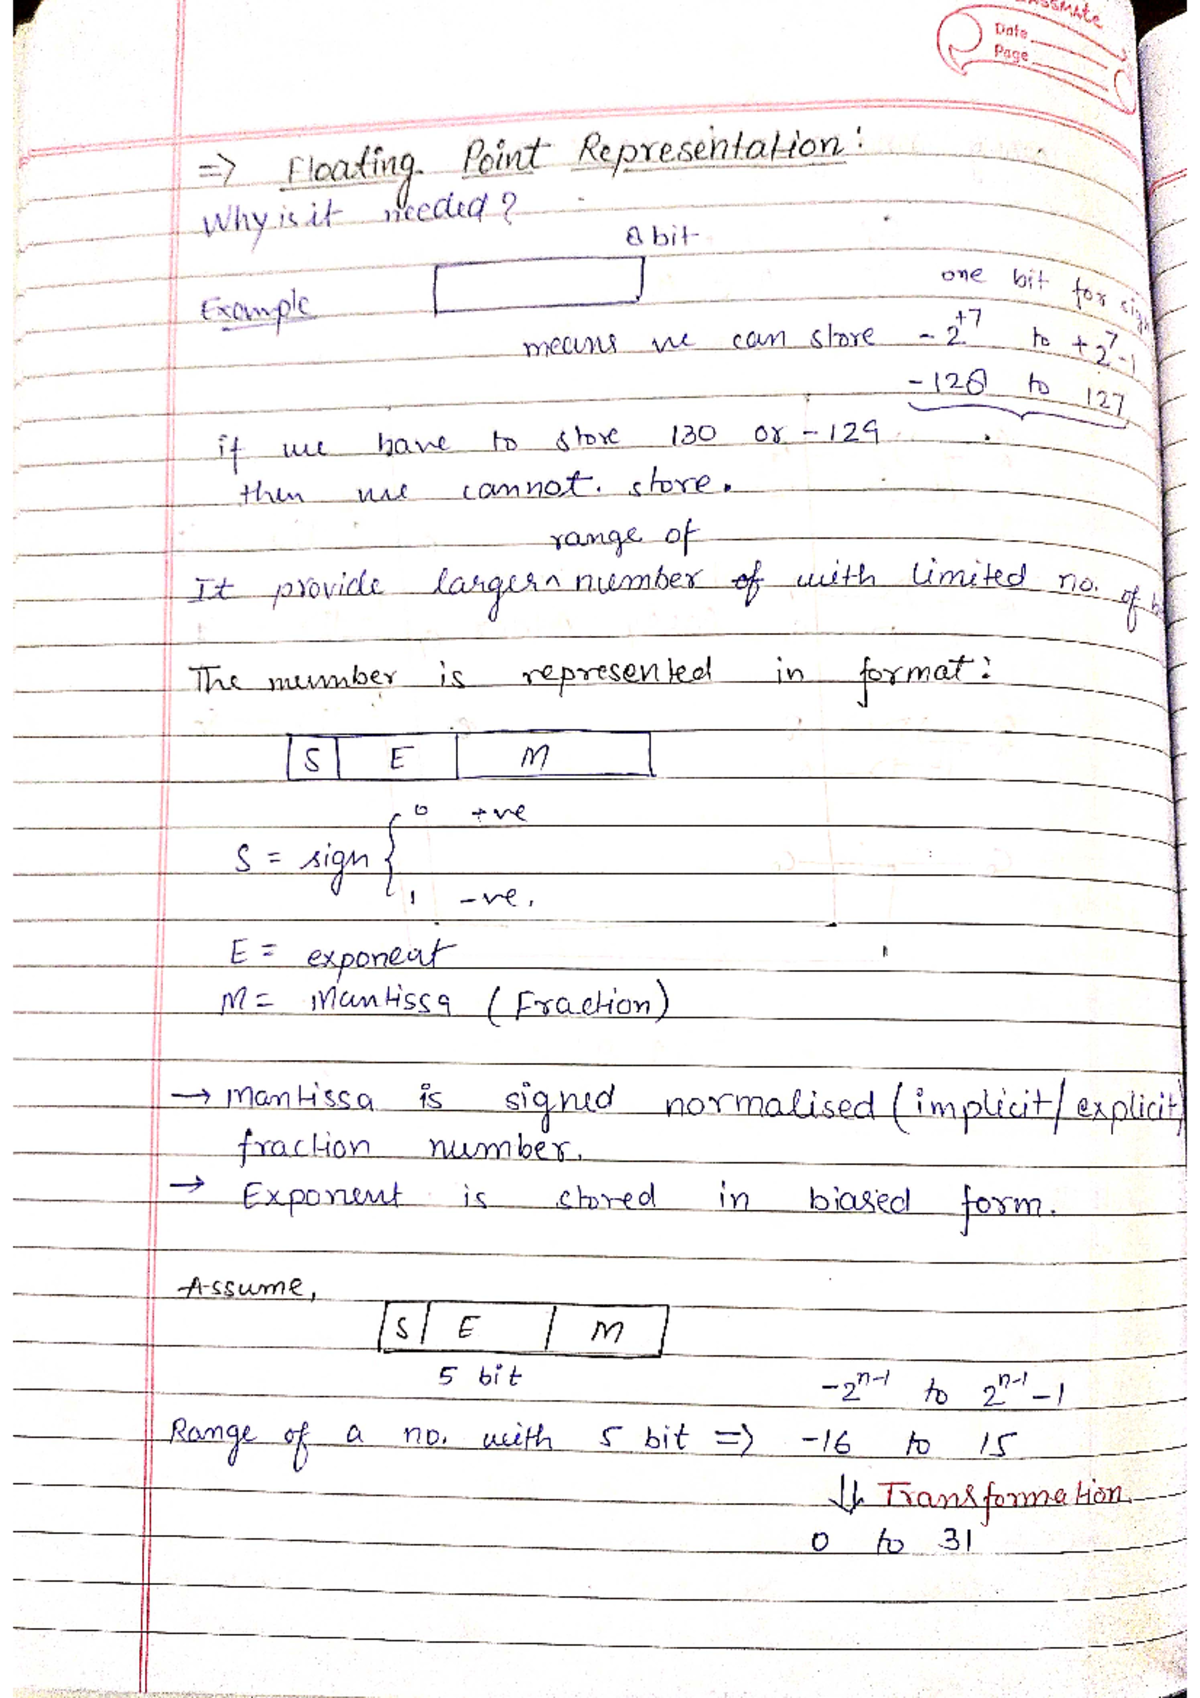 classmate
Date
Page
⇒ Floating Point Representation:
Why is it needed?
8 bit
Example
one bit for sign
means we can store -2^+7 to +2^7-1
-128 to 127
if we have to store 130 or -129
then we cannot. store.
range of
It provide larger ^ number of with limited no. of
The number is represented in format:
S E M
S = sign { 0 +ve
1 -ve.
E = exponent
M = Mantissa (Fraction)
→ Mantissa is signed normalised (implicit/explicit)
fraction number.
→ Exponent is stored in biased form.
Assume,
S E M
5 bit
-2^n-1 to 2^n-1 -1
Range of a no. with 5 bit ⇒ -16 to 15
⇓ Transformation
0 to 31